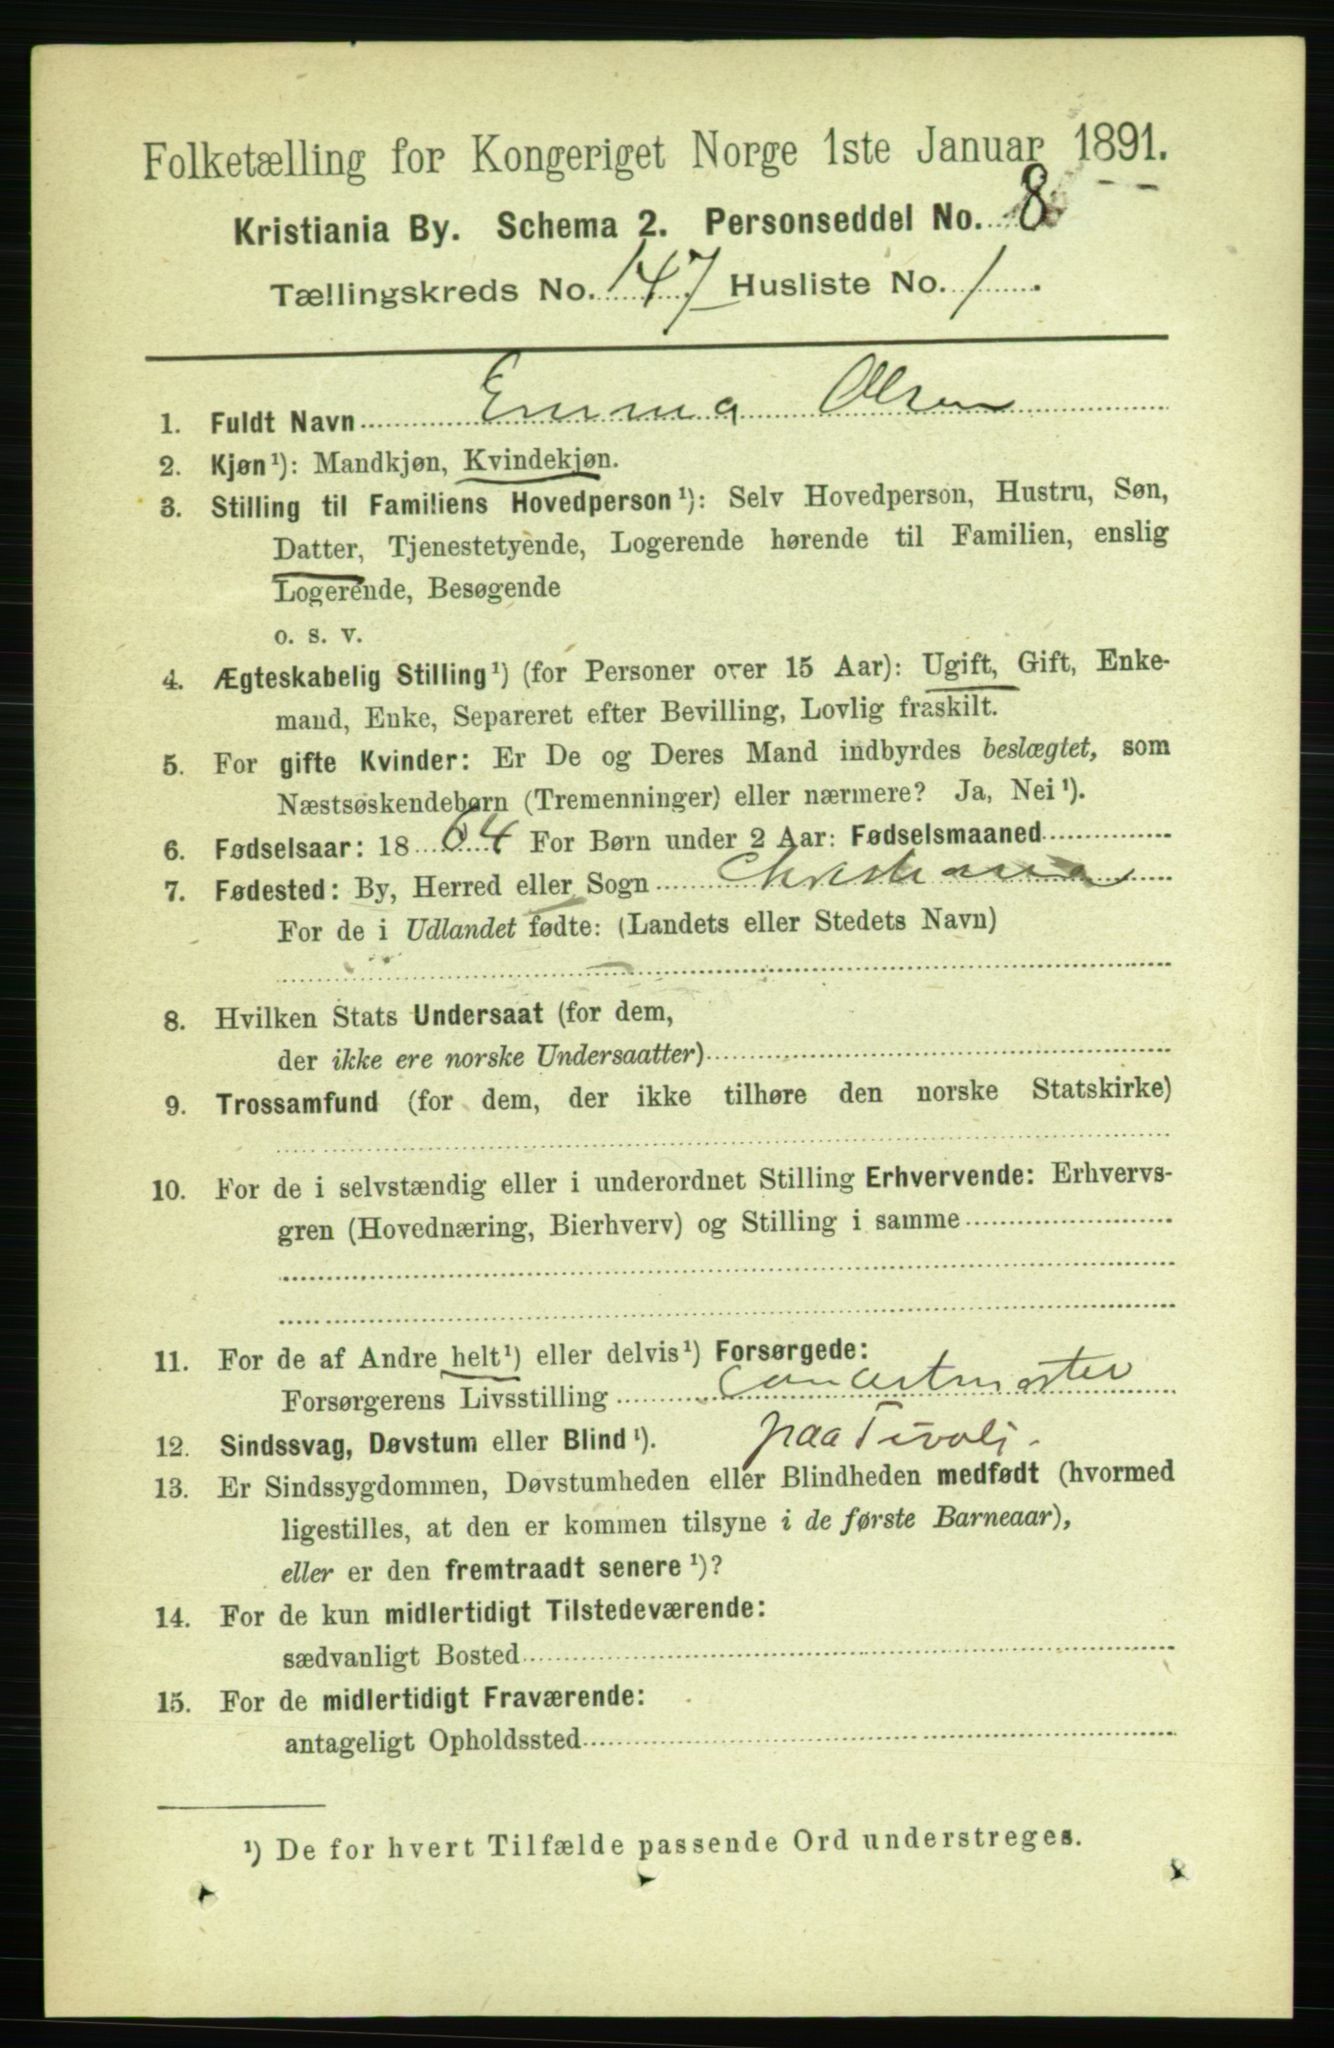 Folketælling for Kongeriget Norge 1ste Januar 1891.
Kristiania By. Schema 2. Personseddel No. 8
Tællingskreds No. 147 Husliste No. 1
1. Fuldt Navn Emma Olsen
2. Kjøn¹): Mandkjøn, Kvindekjøn.
3. Stilling til Familiens Hovedperson¹): Selv Hovedperson, Hustru, Søn,
Datter, Tjenestetyende, Logerende hørende til Familien, enslig
Logerende, Besøgende
o. s. v.
4. Ægteskabelig Stilling¹) (for Personer over 15 Aar): Ugift, Gift, Enke-
mand, Enke, Separeret efter Bevilling, Lovlig fraskilt.
5. For gifte Kvinder: Er De og Deres Mand indbyrdes beslægtet, som
Næstsøskendebørn (Tremenninger) eller nærmere? Ja, Nei¹).
6. Fødselsaar: 18 64 For Børn under 2 Aar: Fødselsmaaned
7. Fødested: By, Herred eller Sogn Christiania
For de i Udlandet fødte: (Landets eller Stedets Navn)
8. Hvilken Stats Undersaat (for dem,
der ikke ere norske Undersaatter)
9. Trossamfund (for dem, der ikke tilhøre den norske Statskirke)
10. For de i selvstændig eller i underordnet Stilling Erhvervende: Erhvervs-
gren (Hovednæring, Bierhverv) og Stilling i samme
11. For de af Andre helt¹) eller delvis¹) Forsørgede:
Forsørgerens Livsstilling Concertmester
12. Sindssvag, Døvstum eller Blind¹). paa Tivoli.
13. Er Sindssygdommen, Døvstumheden eller Blindheden medfødt (hvormed
ligestilles, at den er kommen tilsyne i de første Barneaar),
eller er den fremtraadt senere¹)?
14. For de kun midlertidigt Tilstedeværende:
sædvanligt Bosted
15. For de midlertidigt Fraværende:
antageligt Opholdssted
¹) De for hvert Tilfælde passende Ord understreges.